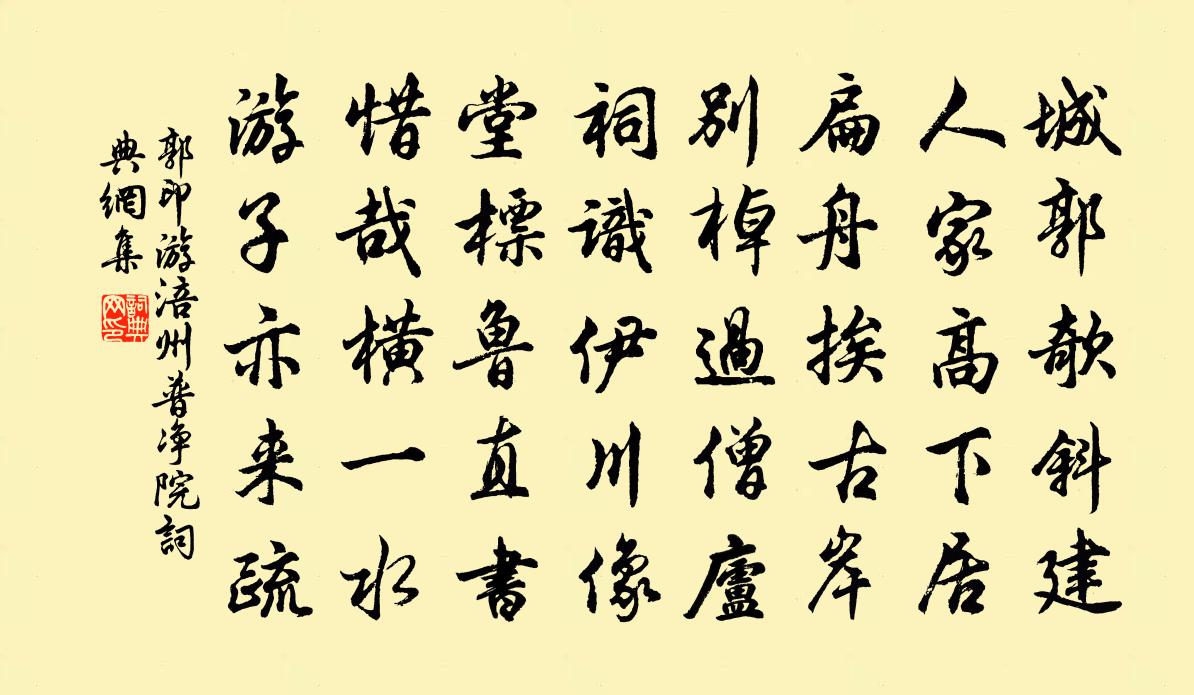 城郭欹斜建
人家高下居
扁舟挨古岸
別棹過僧廬
祠識伊川像
堂標魯直書
惜哉橫一水
游子亦来疏
郭印游涪州普净院詞
典網集
詞典网印